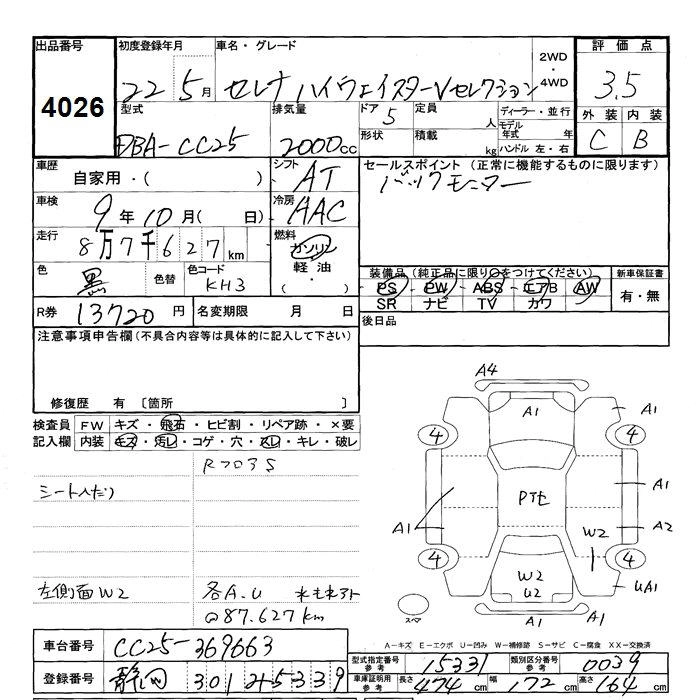 出品番号 初度登録年月 車名・グレード 2WD・4WD 評価点
4026 22 5月 セレナ ハイウェイスターVセレクション 3.5
型式 排気量 ドア 5 定員 人 ディーラー・並行 外装 内装
DBA-CC25 2000cc 形状 積載 kg モデル年式 年 ハンドル 左・右 C B
車歴 自家用・( ) シフト AT セールスポイント(正常に機能するものに限ります)
バックモニター
車検 9年10月( 日) 冷房 AAC
走行 8万7千627km 燃料 ガソリン
軽油・( )
色 黒 色替 色コード KH3
装備品(純正品に限り○をつけてください) 新車保証書
PS PW ABS エアB AW 有・無
SR ナビ TV カワ
R券 13720円 名変期限 月 日 後日品
注意事項申告欄(不具合内容等は具体的に記入して下さい)
修復歴 有 〔箇所 〕
検査員 FW キズ・飛石・ヒビ割・リペア跡・×要
記入欄 内装 キズ・汚レ・コゲ・穴・スレ・キレ・破レ
シート人だり
左側面W2 各A.U
@87.627km
A4
A1 A1
4 4
A1
PTセ
A1 A2
W2
4 4
W2
U2 UA1
スペア A1 A1
A-キズ E-エクボ U-凹み W-補修跡 S-サビ C-腐食 XX-交換済
車台番号 CC25-369663 型式指定番号 参考 15331 類別区分番号 参考 0039
登録番号 静岡 301 そ5339 車庫証明用 参考 長さ 474cm 幅 172cm 高さ 164cm